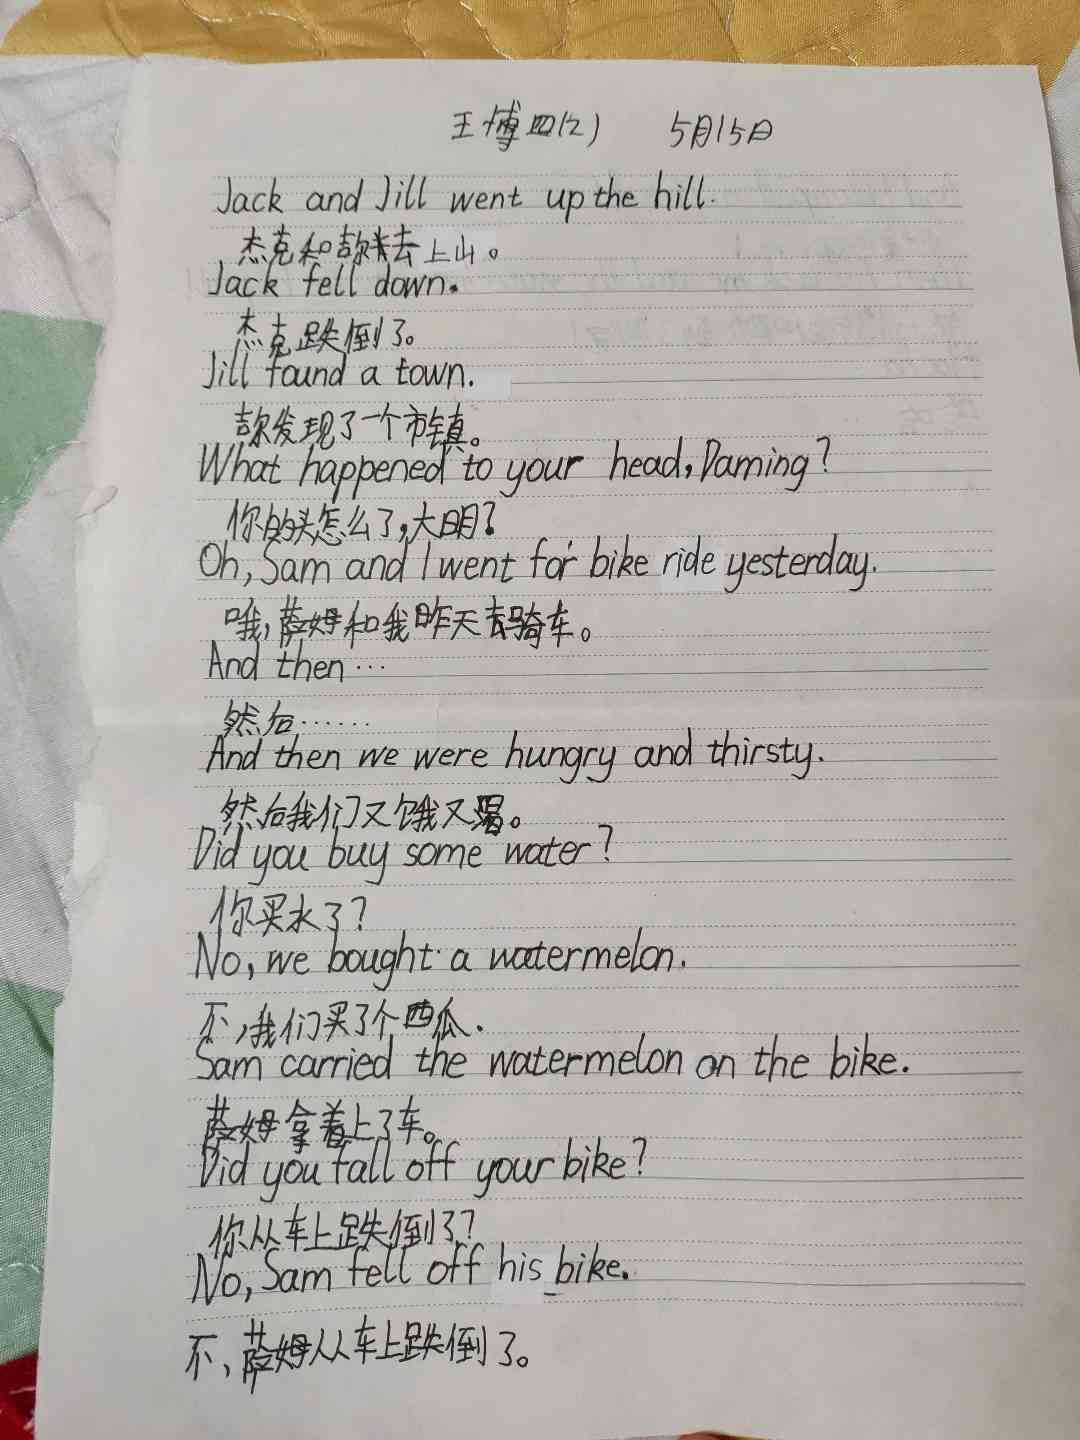 王博四(2) 5月15日
Jack and Jill went up the hill.
杰克和彭尔去上山。
Jack fell down.
杰克跌倒了。
Jill found a town.
彭尔发现了一个市镇。
What happened to your head, Daming?
你的头怎么了,大明?
Oh, Sam and I went for bike ride yesterday.
哦,萨姆和我昨天去骑车。
And then...
然后......
And then we were hungry and thirsty.
然后我们又饿又渴。
Did you buy some water?
你买水了?
No, we bought a watermelon.
不,我们买了个西瓜.
Sam carried the watermelon on the bike.
萨姆拿着上了车。
Did you fall off your bike?
你从车上跌倒了?
No, Sam fell off his bike.
不,萨姆从车上跌倒了。